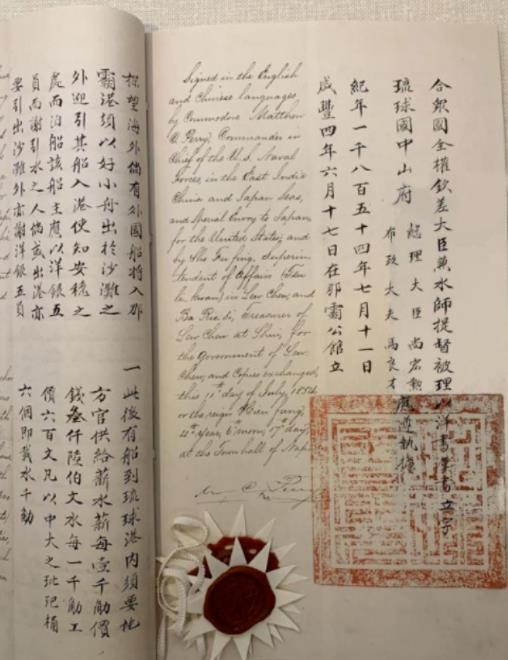 探望海外倘有外國船將入那
霸港須以好小舟出於沙灘之
外迎引其船入港使知安穩之
處而泊船該船主應以洋銀五
員而謝引水之人倘或出港亦
要引出沙灘外亦謝洋銀五員
一此後有船到琉球港內須要地
方官供給薪水薪每壹千觔價
錢叁仟陸伯文水每一千觔工
價六百文凡以中大之桶
六個即載水千觔
Signed in the English
and Chinese languages
by Commodore Matthew
C. Perry, Commander in
Chief of the U.S. Naval
Forces in the East India
China and Japan Seas,
and Special Envoy to Japan,
for the United States; and
by Sho Fu fing, Superin
tendent of Affairs (Tsu
li kwan) in Lew Chew, and
Ba Rio si, Treasurer of
Lew Chew at Shui, for
the Government of Lew
Chew, and copies exchanged,
this 11th day of July, 1854
or the reign Hien fung,
4th Year, 6th moon, 17th day,
at the Town hall of Napa
M. C. Perry
合衆國全權欽差大臣兼水師提督被理以洋書漢書立字
琉球國中山府
總理大臣 尚宏勳
布政大夫 馬良才
應遵執據
紀年一千八百五十四年七月十一日
咸豐四年六月十七日在那霸公館立